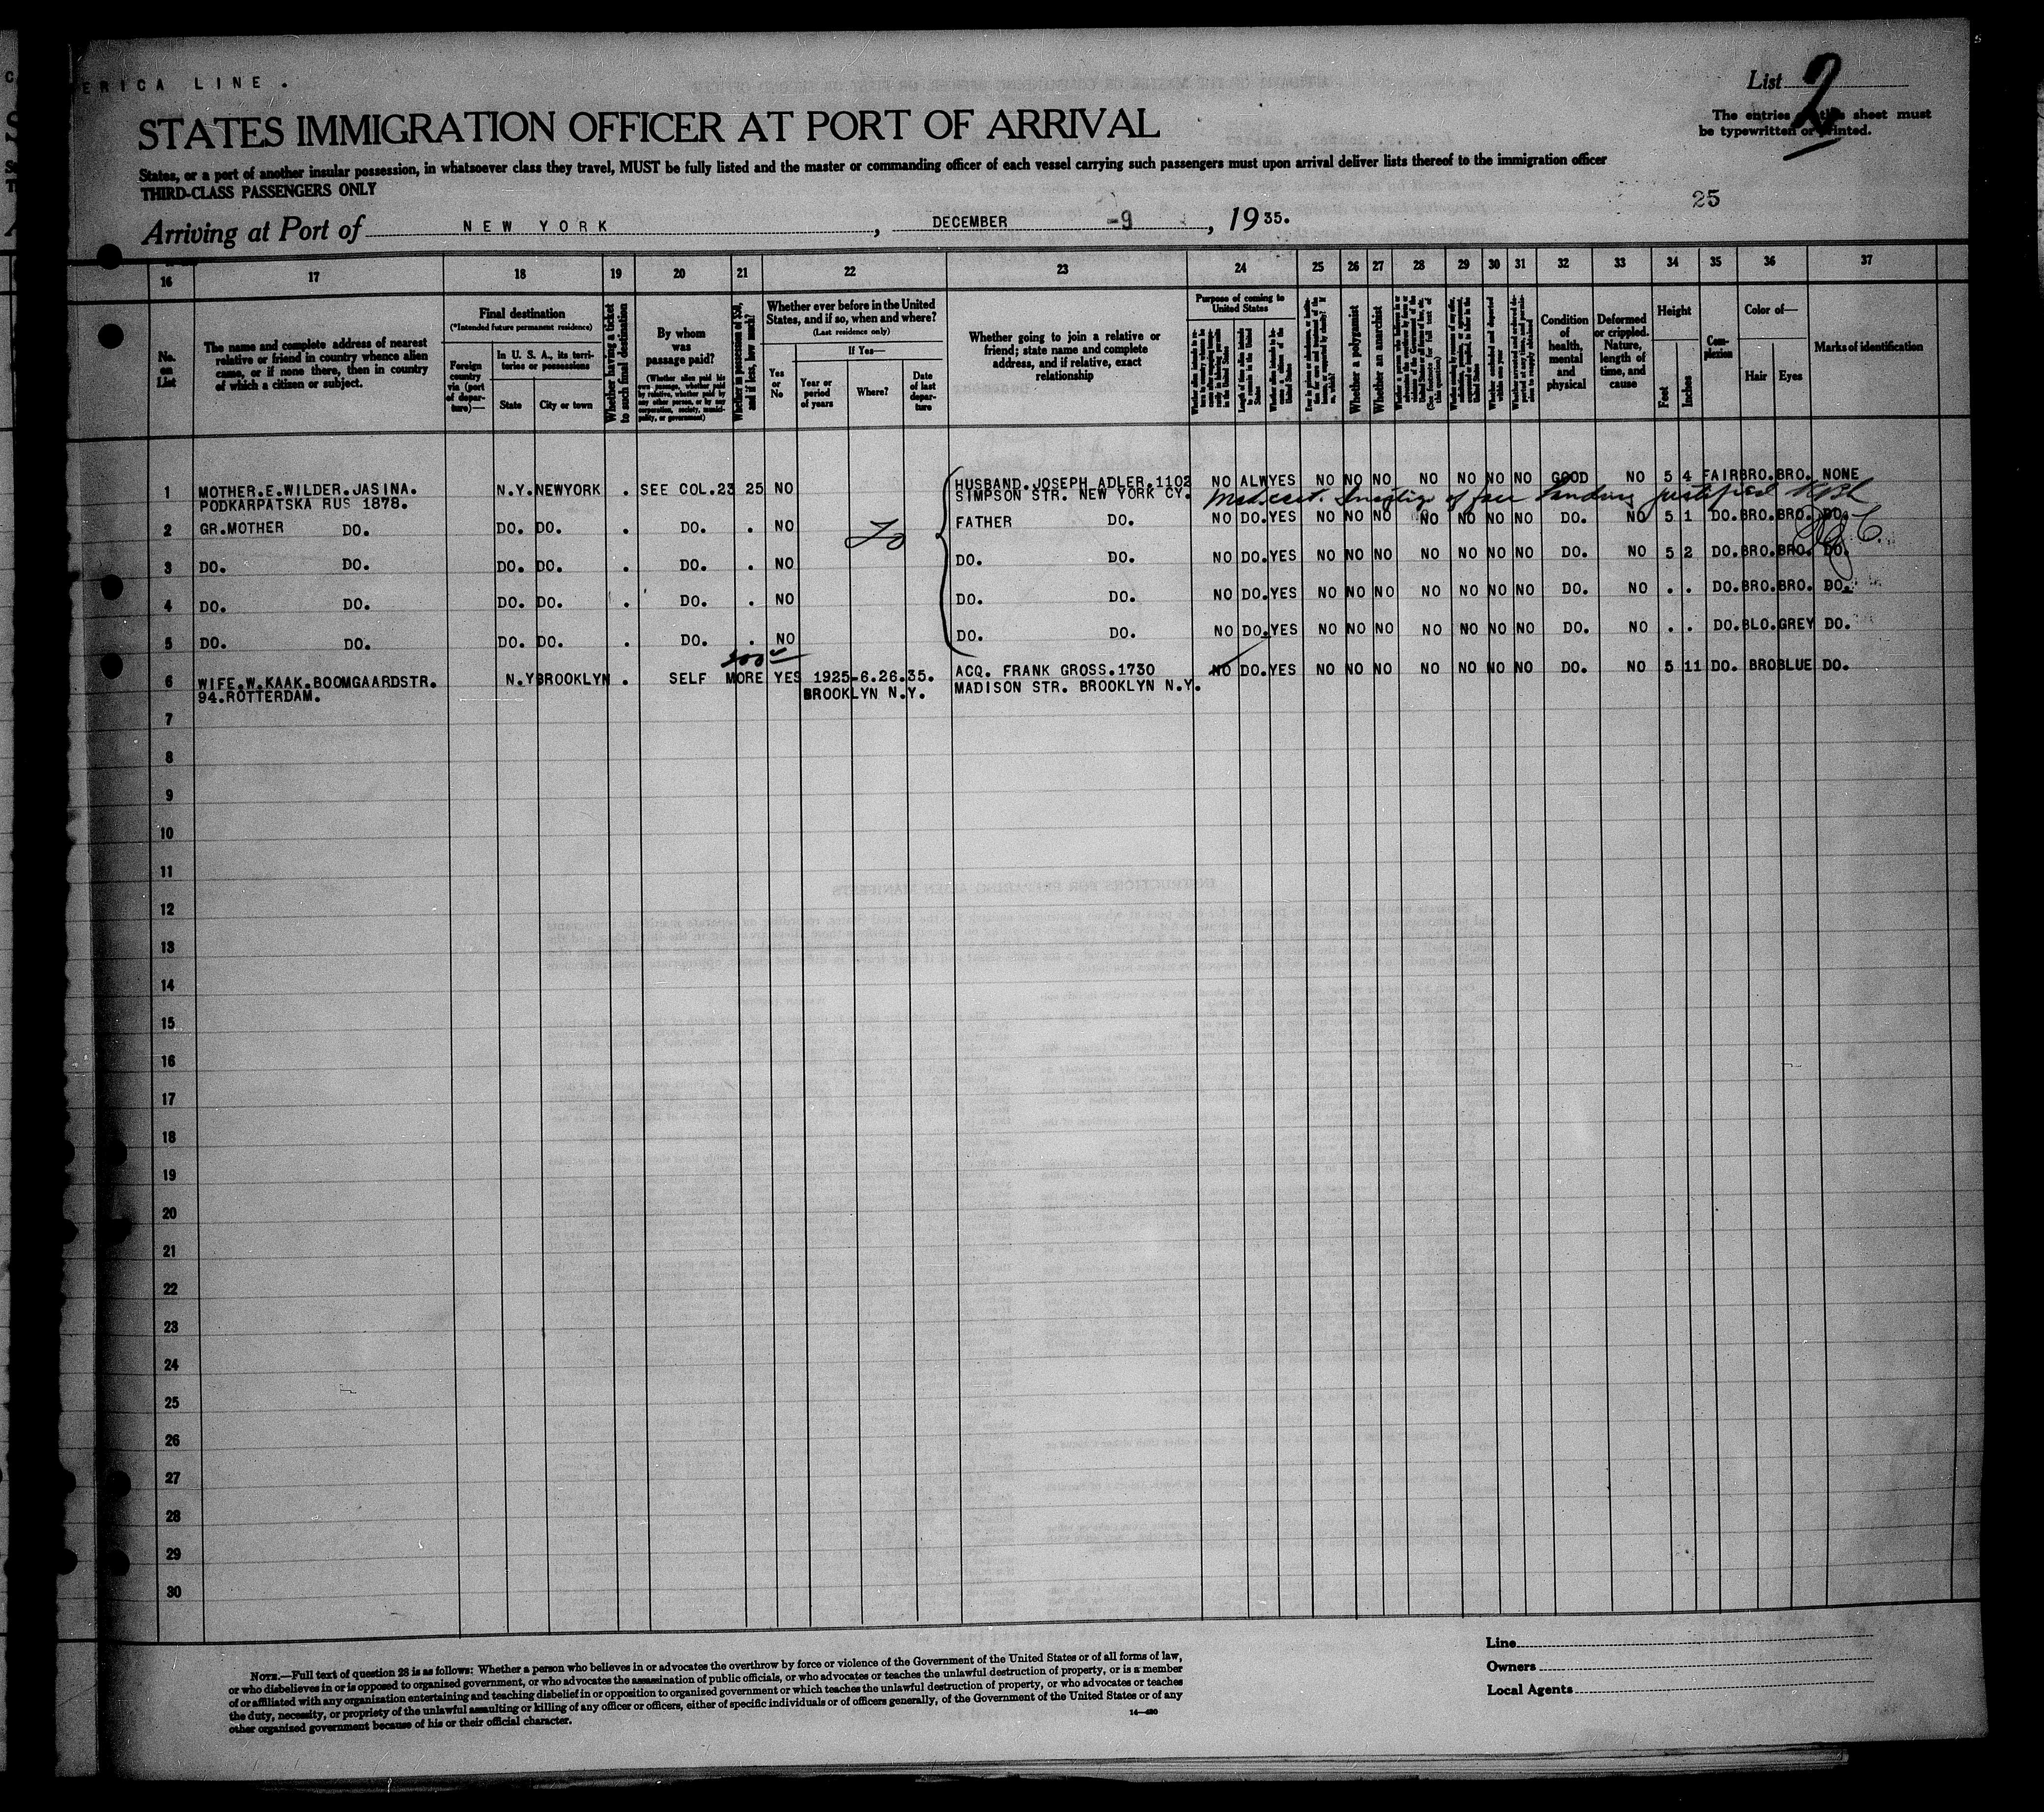 ERICA LINE .
List 2
The entries this sheet must
be typewritten or printed.
STATES IMMIGRATION OFFICER AT PORT OF ARRIVAL
States, or a port of another insular possession, in whatsoever class they travel, MUST be fully listed and the master or commanding officer of each vessel carrying such passengers must upon arrival deliver lists thereof to the immigration officer
THIRD-CLASS PASSENGERS ONLY
25
Arriving at Port of NEW YORK, DECEMBER -9, 1935.
16 17 18 19 20 21 22 23 24 25 26 27 28 29 30 31 32 33 34 35 36 37
No. on List
The name and complete address of nearest relative or friend in country whence alien came, or if none there, then in country of which a citizen or subject.
Final destination
(*Intended future permanent residence)
Foreign country via (port of departure)—
In U. S. A., its territories or possessions
State
City or town
Whether having a ticket to such final destination
By whom was passage paid?
(Whether alien paid his own passage, whether paid by relative, whether paid by any other person, or by any corporation, society, municipality, or government)
Whether in possession of $50, and if less, how much?
Whether ever before in the United States, and if so, when and where?
(Last residence only)
Yes or No
If Yes—
Year or period of years
Where?
Date of last departure
Whether going to join a relative or friend; state name and complete address, and if relative, exact relationship
Purpose of coming to United States
Whether a polygamist
Whether an anarchist
Condition of health, mental and physical
Deformed or crippled. Nature, length of time, and cause
Height
Feet
Inches
Complexion
Color of—
Hair
Eyes
Marks of identification
1 MOTHER.E.WILDER.JASINA. N.Y. NEWYORK . SEE COL.23 25 NO HUSBAND.JOSEPH ADLER.1102 NO ALW YES NO NO NO NO NO NO NO GOOD NO 5 4 FAIR BRO. BRO. NONE
PODKARPATSKA RUS 1878. SIMPSON STR. NEW YORK CY.
Med cert. of landing justified
2 GR.MOTHER DO. DO. DO. . DO. . NO FATHER DO. NO DO. YES NO NO NO NO NO NO NO DO. NO 5 1 DO. BRO. BRO. DO.
3 DO. DO. DO. DO. . DO. . NO DO. DO. NO DO. YES NO NO NO NO NO NO NO DO. NO 5 2 DO. BRO. BRO. DO.
4 DO. DO. DO. DO. . DO. . NO DO. DO. NO DO. YES NO NO NO NO NO NO NO DO. NO . . DO. BRO. BRO. DO.
5 DO. DO. DO. DO. . DO. . NO DO. DO. NO DO. YES NO NO NO NO NO NO NO DO. NO . . DO. BLO. GREY DO.
6 WIFE.W.KAAK.BOOMGAARDSTR. N.Y BROOKLYN . SELF MORE YES 1925-6.26.35. ACQ. FRANK GROSS.1730 NO DO. YES NO NO NO NO NO NO NO DO. NO 5 11 DO. BRO BLUE DO.
94.ROTTERDAM. BROOKLYN N.Y. MADISON STR. BROOKLYN N.Y.
7
8
9
10
11
12
13
14
15
16
17
18
19
20
21
22
23
24
25
26
27
28
29
30
NOTE.—Full text of question 28 is as follows: Whether a person who believes in or advocates the overthrow by force or violence of the Government of the United States or of all forms of law,
or who disbelieves in or is opposed to organized government, or who advocates the assassination of public officials, or who advocates or teaches the unlawful destruction of property, or is a member
of or affiliated with any organization entertaining and teaching disbelief in or opposition to organized government or which teaches the unlawful destruction of property, or who advocates or teaches
the duty, necessity, or propriety of the unlawful assaulting or killing of any officer or officers, either of specific individuals or of officers generally, of the Government of the United States or of any
other organized government because of his or their official character.
14—480
Line
Owners
Local Agents